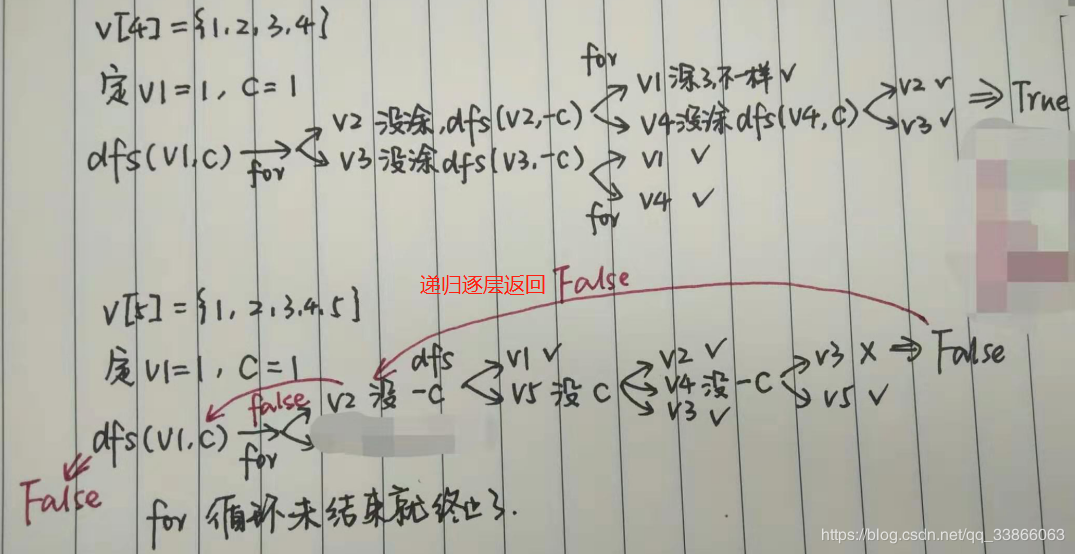 v[4]={1,2,3,4}
定v1=1, C=1
dfs(v1,C) for
v2 没涂,dfs(v2,-C)
v3 没涂dfs(v3,-C)
for
v1 涂了,不一样 ✓
v4没涂 dfs(v4,C)
v2 ✓
v3 ✓
⇒ True
v1 ✓
v4 ✓
for
递归逐层返回 False
v[5]={1,2,3,4,5}
定v1=1, C=1
dfs(v1,C) for
false
v2 没 dfs -C
v1 ✓
v5 没 C
v2 ✓
v4 没 -C
v3 ✓
v3 ×
v5 ✓
⇒ False
False
for 循环未结束就终止了.
https://blog.csdn.net/qq_33866063